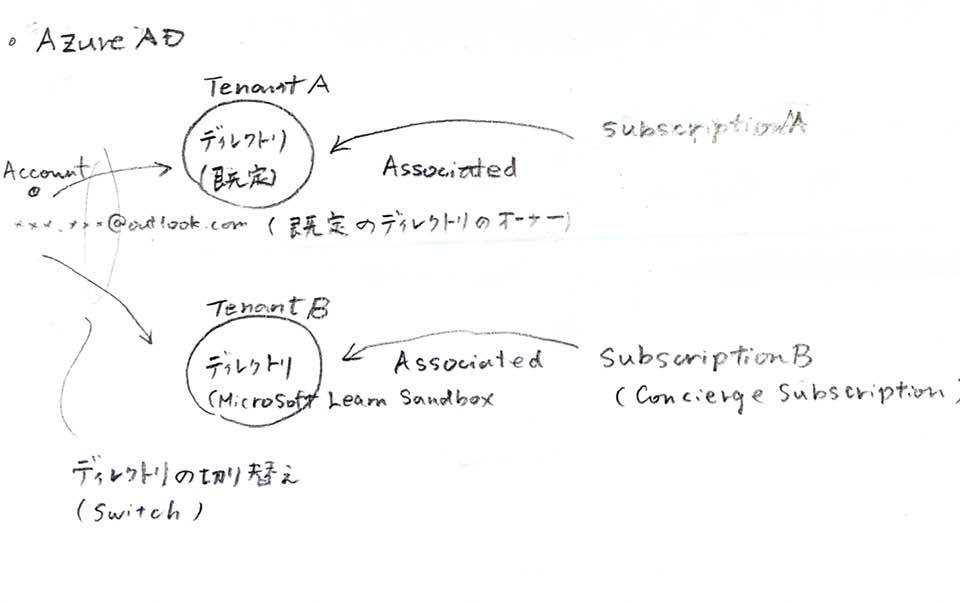 。Azure AD
Tenant A
ディレクトリ
(既定)
Associated
SubscriptionA
Account
***.***@outlook.com (既定のディレクトリのオーナー)
Tenant B
ディレクトリ
(Microsoft Learn Sandbox
Associated
SubscriptionB
(Concierge Subscription)
ディレクトリの切り替え
(Switch)